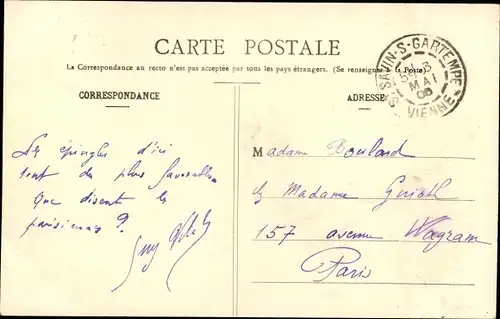 CARTE POSTALE
La Correspondance au recto n'est pas acceptée par tous les pays étrangers. (Se renseigner à la Poste)
CORRESPONDANCE
ADRESSE
ST SAVIN-S-GARTEMPE
3
MAI
VIENNE
Les épingles d'ici
sont de plus
Que disent les
parisiennes ?
Guy
Madame Boulard
Madame
157 avenue Wagram
Paris